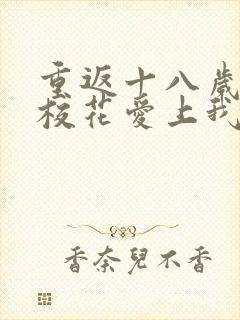 重返十八歲
校花愛上我
香奈兒不香